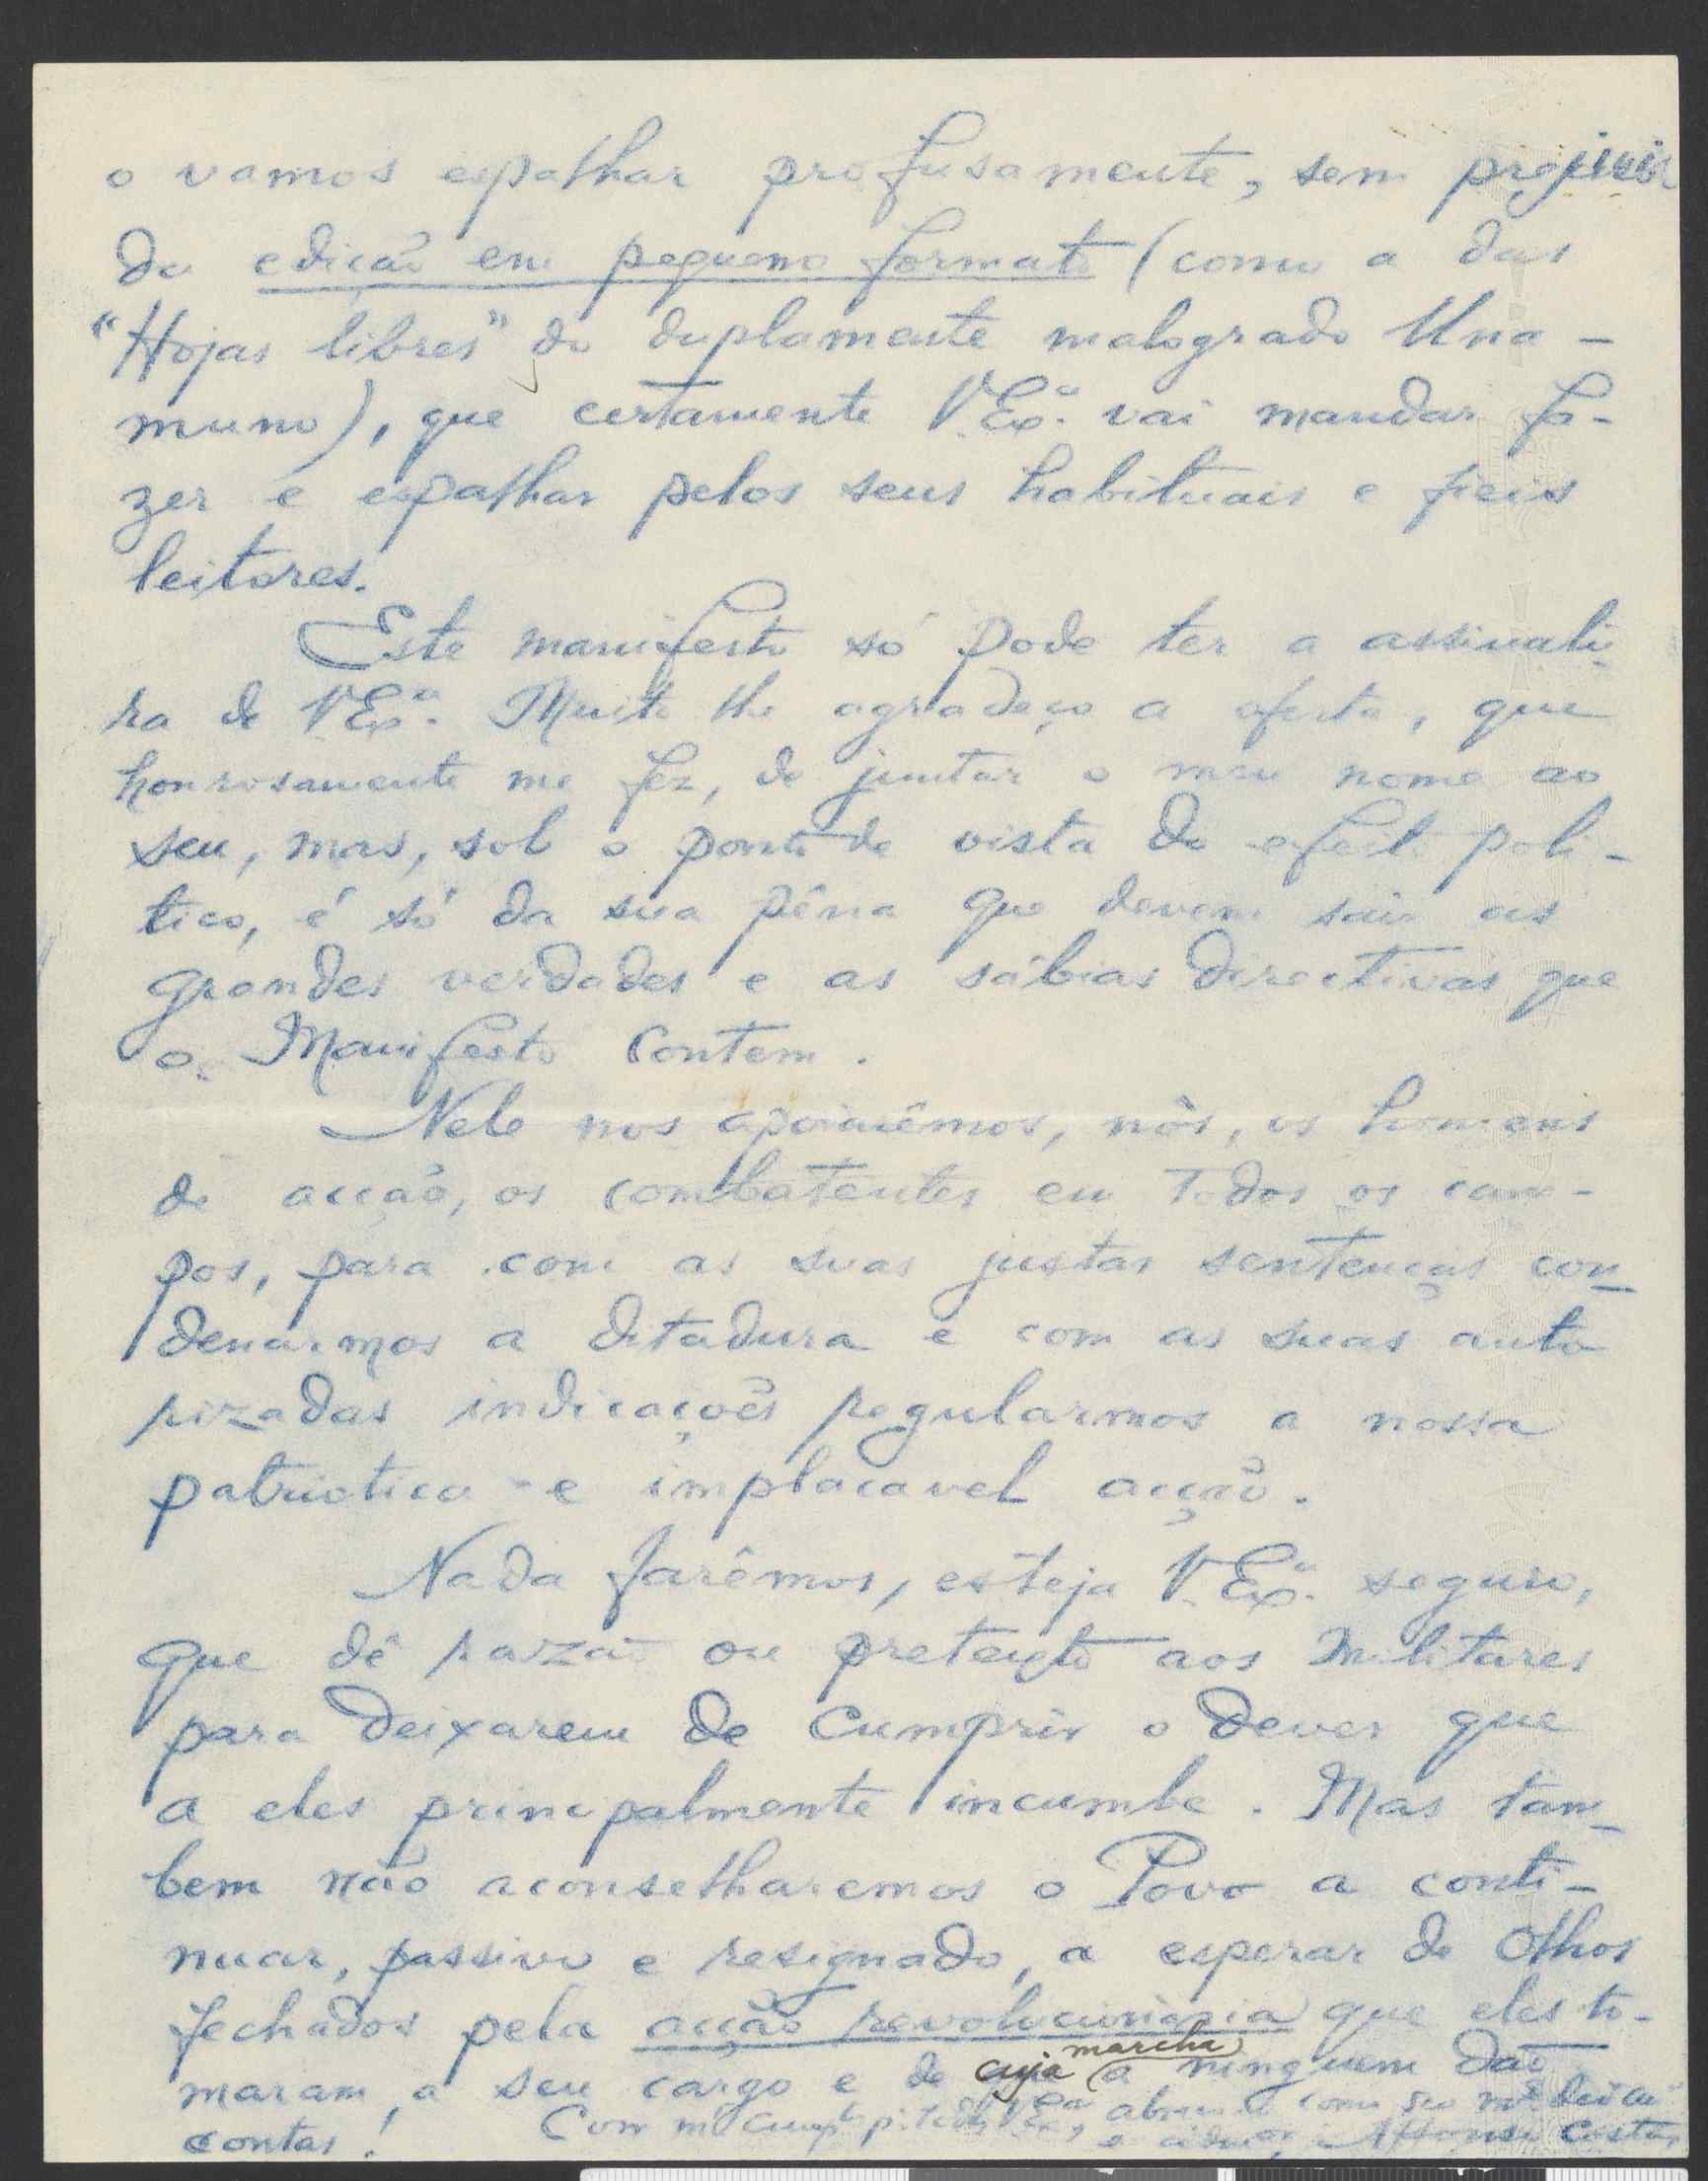 o vamos espalhar profusamente, sem prejuizo
da edição em pequeno formato (como a das
"Hojas libres" do duplamente malogrado Una-
muno), que certamente V. Ex.ª vai mandar fa-
zer e espalhar pelos seus habituais e fieis
leitores.
Este manifesto só pode ter a assinatu-
ra de V. Ex.ª. Muito lhe agradeço a oferta, que
honrosamente me fez, de juntar o meu nome ao
seu, mas, sob o ponto de vista do efeito poli-
tico, é só da sua pêna que devem sair as
grandes verdades e as sábias directivas que
o Manifesto contem.
Nele nos apoiarêmos, nós, os homens
de acção, os combatentes em todos os cam-
pos, para com as suas justas sentenças con-
denarmos a ditadura e com as suas auto
rizadas indicações regularmos a nossa
patriotica e implacavel acção.
Nada farêmos, esteja V. Ex.ª seguro,
que dê razão ou pretexto aos militares
para deixarem de cumprir o dever que
a eles principalmente incumbe. Mas tam-
bem não aconselharemos o Povo a conti-
nuar, passivo e resignado, a esperar de olhos
fechados pela acção revolucionária que eles to-
maram a seu cargo e de cuja marcha a ninguem dão
contas! Com m.tos cump.tos p.ª todos V. Ex.as, abraça-o como seu m.to
e Affonso Costa